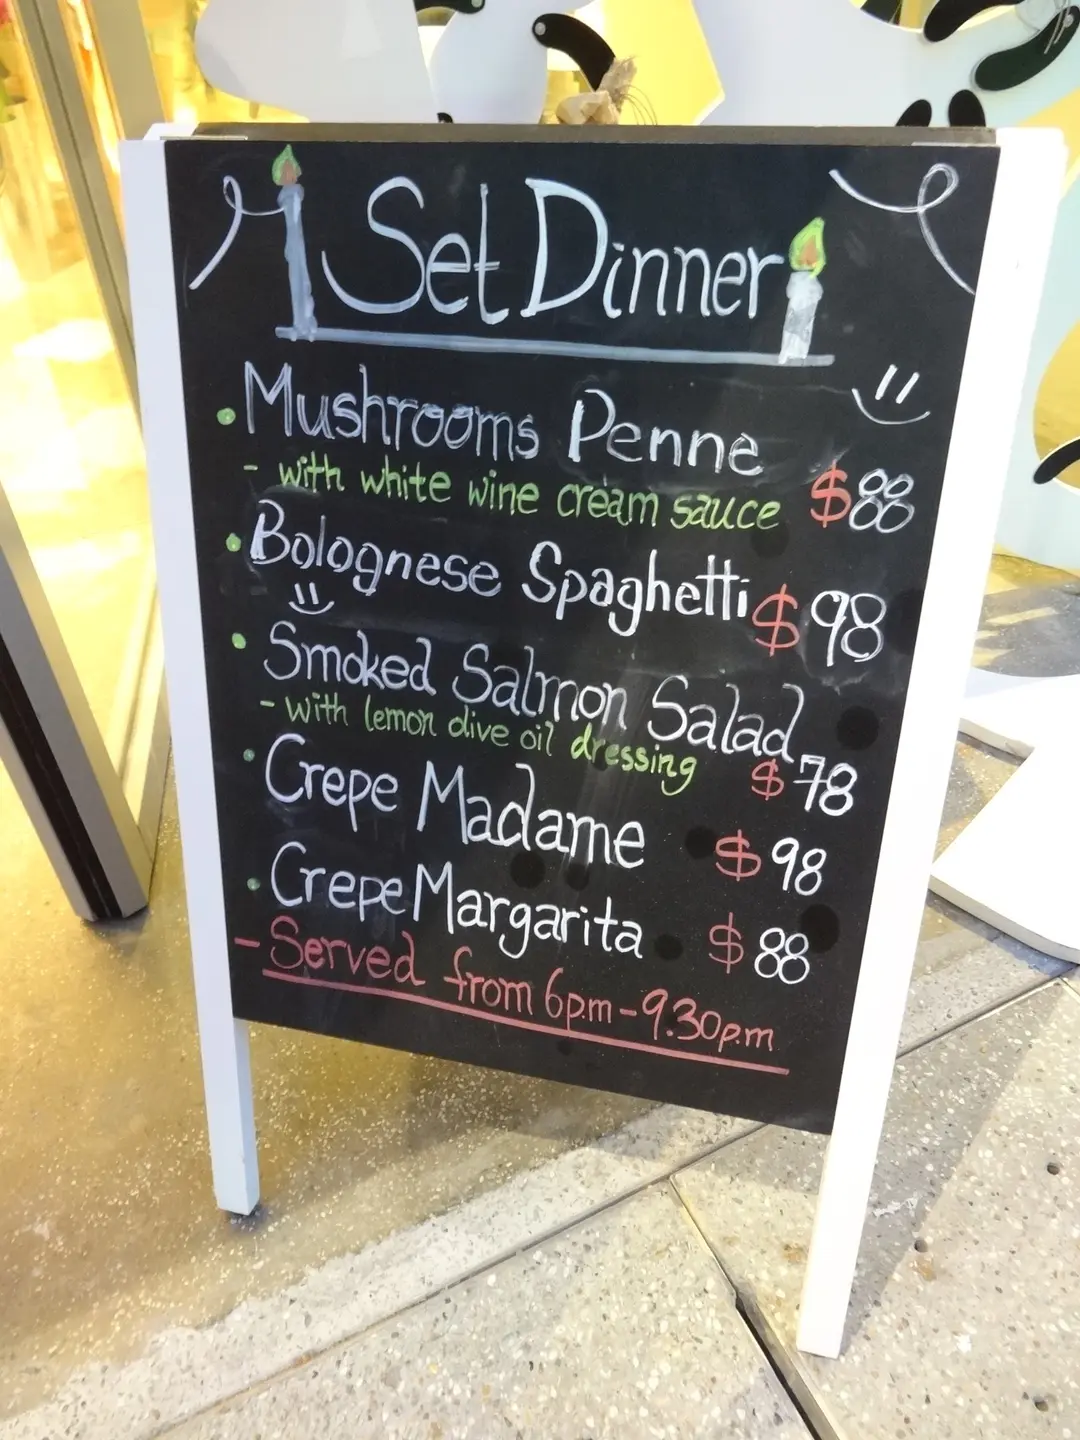 Set Dinner
• Mushrooms Penne
- with white wine cream sauce $88
• Bolognese Spaghetti $98
• Smoked Salmon Salad
- with lemon olive oil dressing $78
• Crepe Madame $98
• Crepe Margarita $88
- Served from 6p.m - 9.30p.m